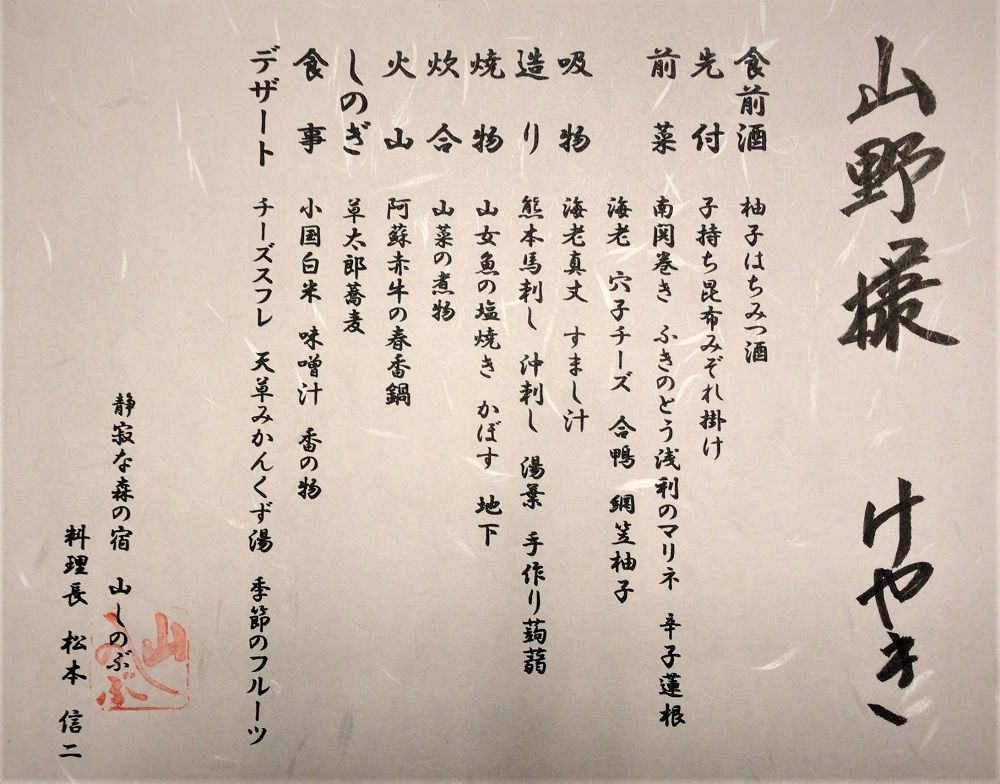 山野様 けやき
食前酒 柚子はちみつ酒
先付 子持ち昆布みぞれ掛け
前菜 南関巻き ふきのとう浅利のマリネ 辛子蓮根
海老 穴子チーズ 合鴨 網笠柚子
吸物 海老真丈 すまし汁
造り 熊本馬刺し 沖刺し 湯葉 手作り蒟蒻
焼物 山女魚の塩焼き かぼす 地下
炊合 山菜の煮物
火山 阿蘇赤牛の春香鍋
しのぎ 草太郎蕎麦
食事 小国白米 味噌汁 香の物
デザート チーズスフレ 天草みかんくず湯 季節のフルーツ
静寂な森の宿 山しのぶ
料理長 松本 信二
山しのぶ